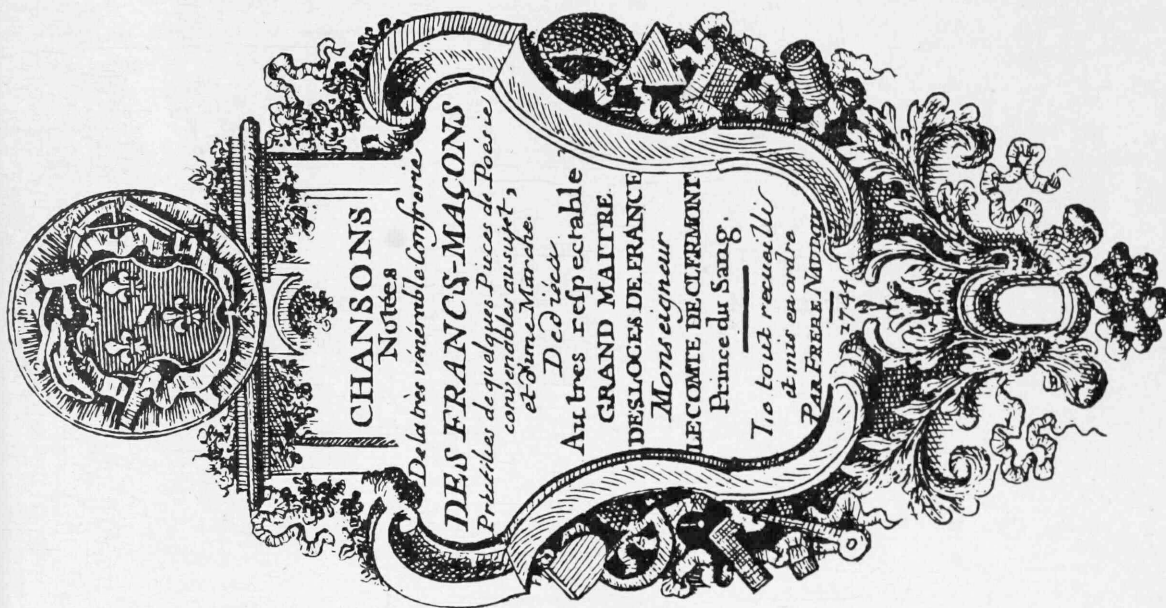 CHANSONS
Notées
De la très vénérable Confrérie
DES FRANCS-MAÇONS
Précédées de quelques Pieces de Poésie
convenables au sujet,
et d'une Marche.
Dediées
Au très respectable
GRAND MAITRE
DES LOGES DE FRANCE
Monseigneur
LE COMTE DE CLERMONT
Prince du Sang.
Le tout recueilli
et mis en ordre
PAR FRERE NAUDOT
1744